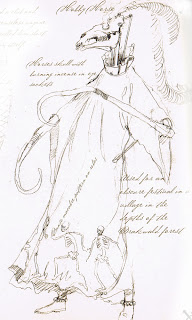 Hobby Horse
Horses skull with
burning incense in eye
sockets
Used for an
obscure festival in a
village in the
depths of the
Drakwald forest